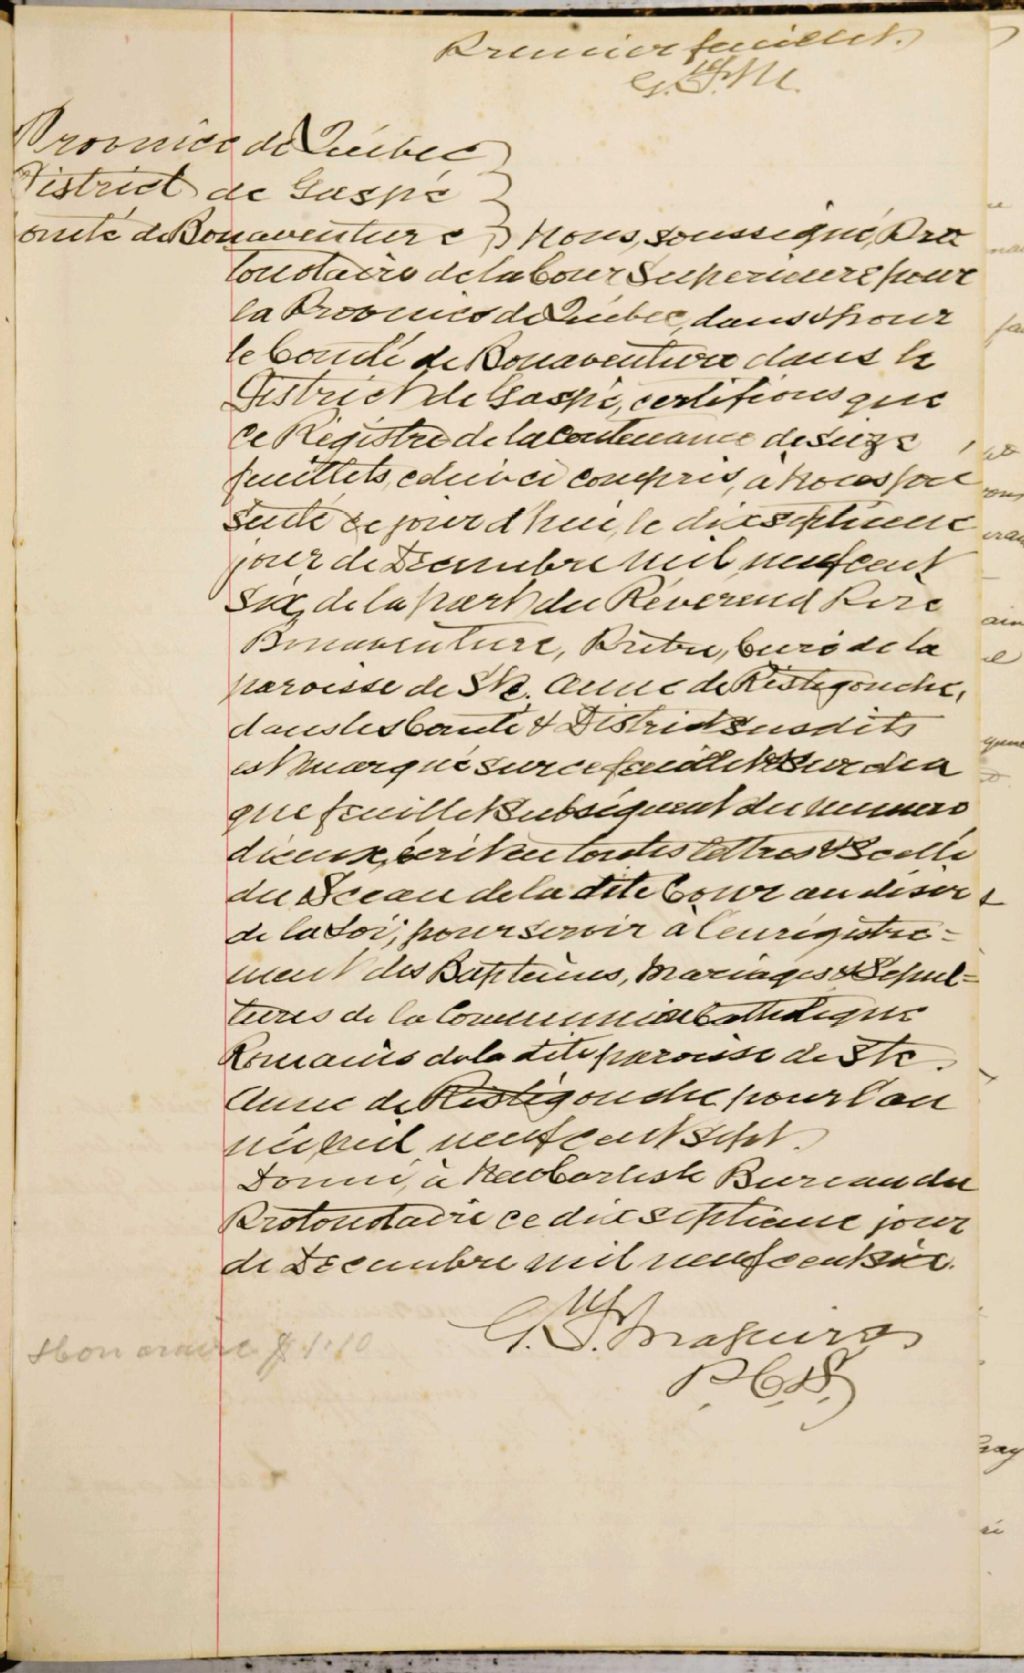 Premier feuillet.
G. F. M.
Province de Québec
District de Gaspé
Comté de Bonaventure Nous, soussigné, Pro
tonotaire de la Cour Superieure pour
la Province de Québec, dans & pour
le Comté de Bonaventure dans le
District de Gaspé, certifions que
ce Régistre de la Contenance de seize
feuillets, celui-ci compris, à Nous pré
senté ce jour d'hui, le dixseptieme
jour de Decembre mil neuf cent
Six, de la part du Révérend Père
Bonaventure, Prêtre, Curé de la
paroisse de Ste. Anne de Ristigouche,
dans les Comté & District susdits
est marqué sur ce feuillet & sur cha
que feuillet subséquent du numero
écrit en toutes lettres & Scellé
du Sceau de la dite Cour au désir
de la Loi, pour servir à l'enrégistre=
ment des Baptêmes, Mariages & Sépul=
tures de la Communion Catholique
Romaine de la dite paroisse de Ste.
Anne de Ristigouche pour l'an
née mil neuf cent sept.
Donné, à New Carlisle Bureau du
Protonotaire ce dixseptieme jour
de Decembre mil neuf cent six.
G. F. Maguire
P. C. S.
Honoraire $ 1.10